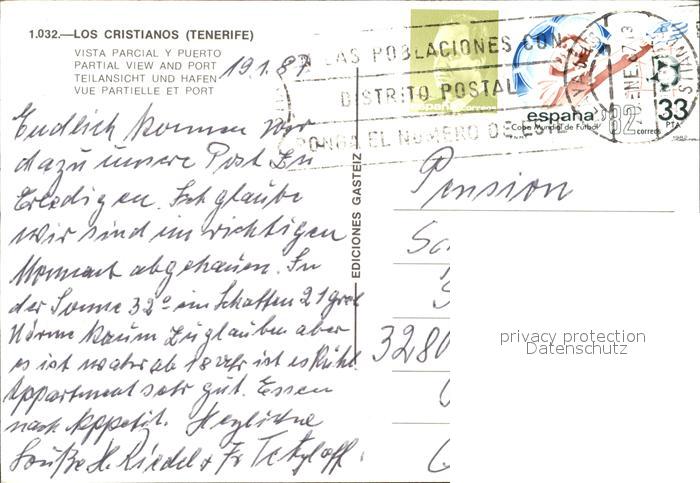 1.032.—LOS CRISTIANOS (TENERIFE)
VISTA PARCIAL Y PUERTO
PARTIAL VIEW AND PORT
TEILANSICHT UND HAFEN
VUE PARTIELLE ET PORT
19.1.87
LAS POBLACIONES CON
DISTRITO POSTAL
PONGA EL NUMERO DE
españa correos
españa 82 correos
Copa Mundial de Fútbol
33 PTA
EDICIONES GASTEIZ
Endlich kommen Wir
dazu unsere Post Zu
Erledigen. Ich glaube
Wir sind im richtigen
Moment abgehauen. In
der Sonne 32° im Schatten 21 Grad
Wärme kaum Zu glauben aber
es ist wahr ab 18 Uhr ist es Kühl.
Appartement sehr gut. Essen
nach Appetit. Herzliche
Grüße H. Riedel + Fr Tetzloff.
Pension
3280
privacy protection
Datenschutz